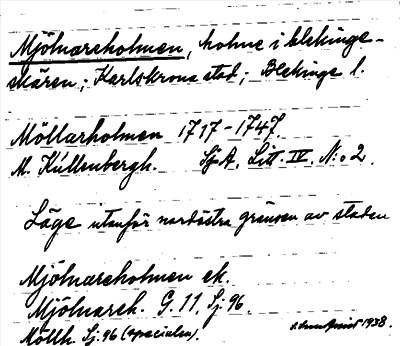 Mjölnareholmen, holme i blekinge-
skären; Karlskrona stad; Blekinge l.
Möllarholmen 1717-1747.
M. Kullenbergh. SjA. Litt. IV. N:o 2.
Läge utanför nordöstra gränsen av staden
Mjölnareholmen ek.
Mjölnareh. G. 11, Sj. 96.
Möllh. Sj. 96 (specialen).
1938.